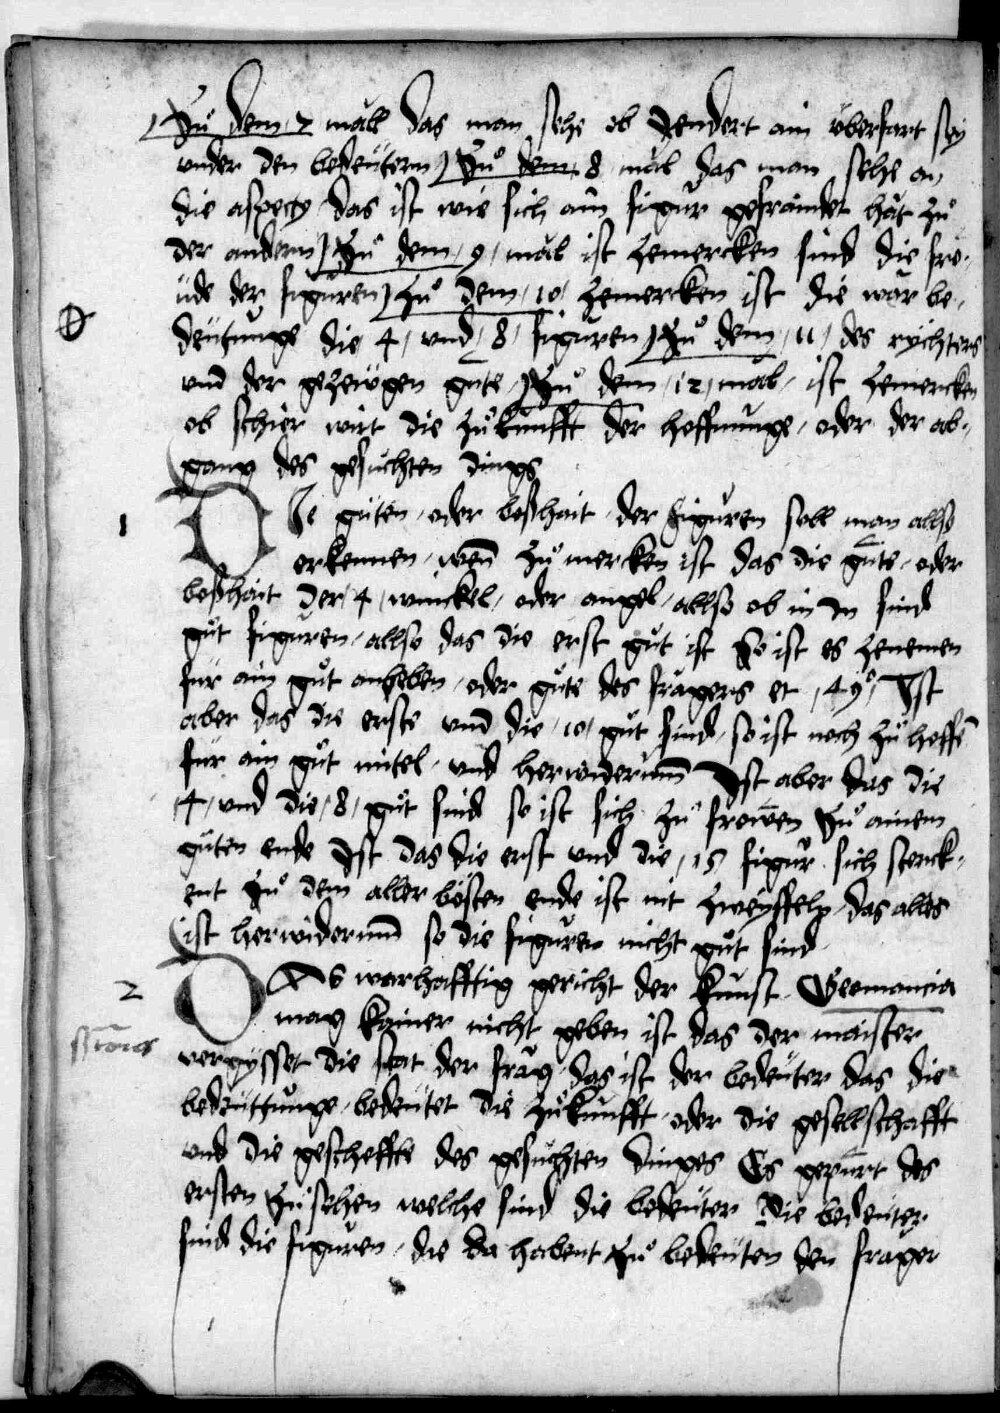 Zuͦ dem 7 mall das man sehe ob Jendert ain überfart sey
vnder den bedeütern) Zuͦ dem 8 mal das man sehe an
die aspecty das ist wie sich ain figur gefraindet hat zuͦ
der andern) Zuͦ dem / 9 / mal ist zemercken sind die fro-
üde der figuren) Zuͦ dem / 10 / zemercken ist die war be-
deütunge die 4 / vnd / 8 / figuren) Zuͦ dem / 11 / des rychters
vnd der gezeügen gute) Zuͦ dem / 12 / mal / ist zemercken
ob schier wirt die zuͦkunfft der hoffnunge / oder der ab-
gang des gesuchten dings
1
DIe guten / oder boßhait / der figuren soll man allso
erkennen / wen̄ zuͦ mercken ist das die gute / oder
boßhait der / 4 / winckel / oder angel / allso ob in Jn sind
guͦt figuren / allso das die erst guͦt ist So ist es zenemen
für ain guͦt anheben / oder guͦte des fragers et / 4 / Ist
aber das die erste vnd die / 10 / guͦt sind / so ist noch zuͦ hoffen̄
für ain guͦt mitel / vnd herwiderum̄ Ist aber das die
/ 4 / vnd die / 8 / guͦt sind so ist sich zuͦ frowen Zuͦ ainem
guͦten ende Ist das die erst vnd die / 15 figur sich sterck-
ent Zuͦ dem aller bösten ende ist nit zweyffels das alles
ist herwiderum̄ so die figuren nicht guͦt sind
2
DAs warhafftig gericht der kunst Geomancia
mag kainer nicht geben ist das der maister
vergysset die stat der frag das ist der bedeüter das die
bedeüttunge / bedeütet die zuͦkunfft / oder die gesellschafft
vnd die gescheffte des gesuͦchten dinges Es gepürt des
ersten Zuͦ sehen welche sind die bedeüter Die bedeüter
sind die figuren / die da habent Zuͦ bedeüten den frager